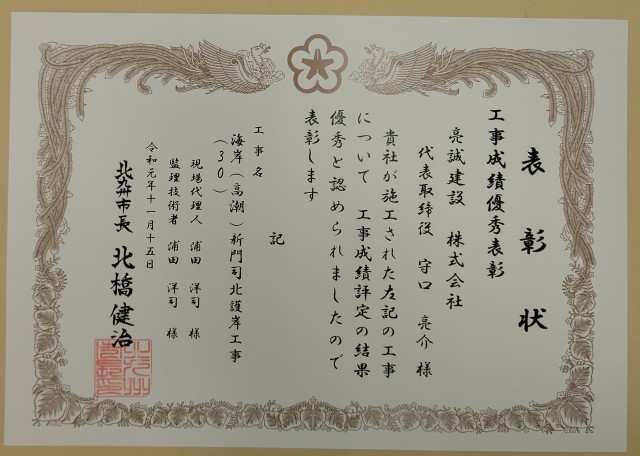 表彰状
工事成績優秀表彰
亮誠建設　株式会社
代表取締役　守口　亮介　様
貴社が施工された左記の工事
について　工事成績評定の結果
優秀と認められましたので
表彰します
記
工事名
海岸（高潮）新門司北護岸工事
（30）
現場代理人　浦田　洋司　様
監理技術者　浦田　洋司　様
令和元年十一月十五日
北九州市長　北橋健治